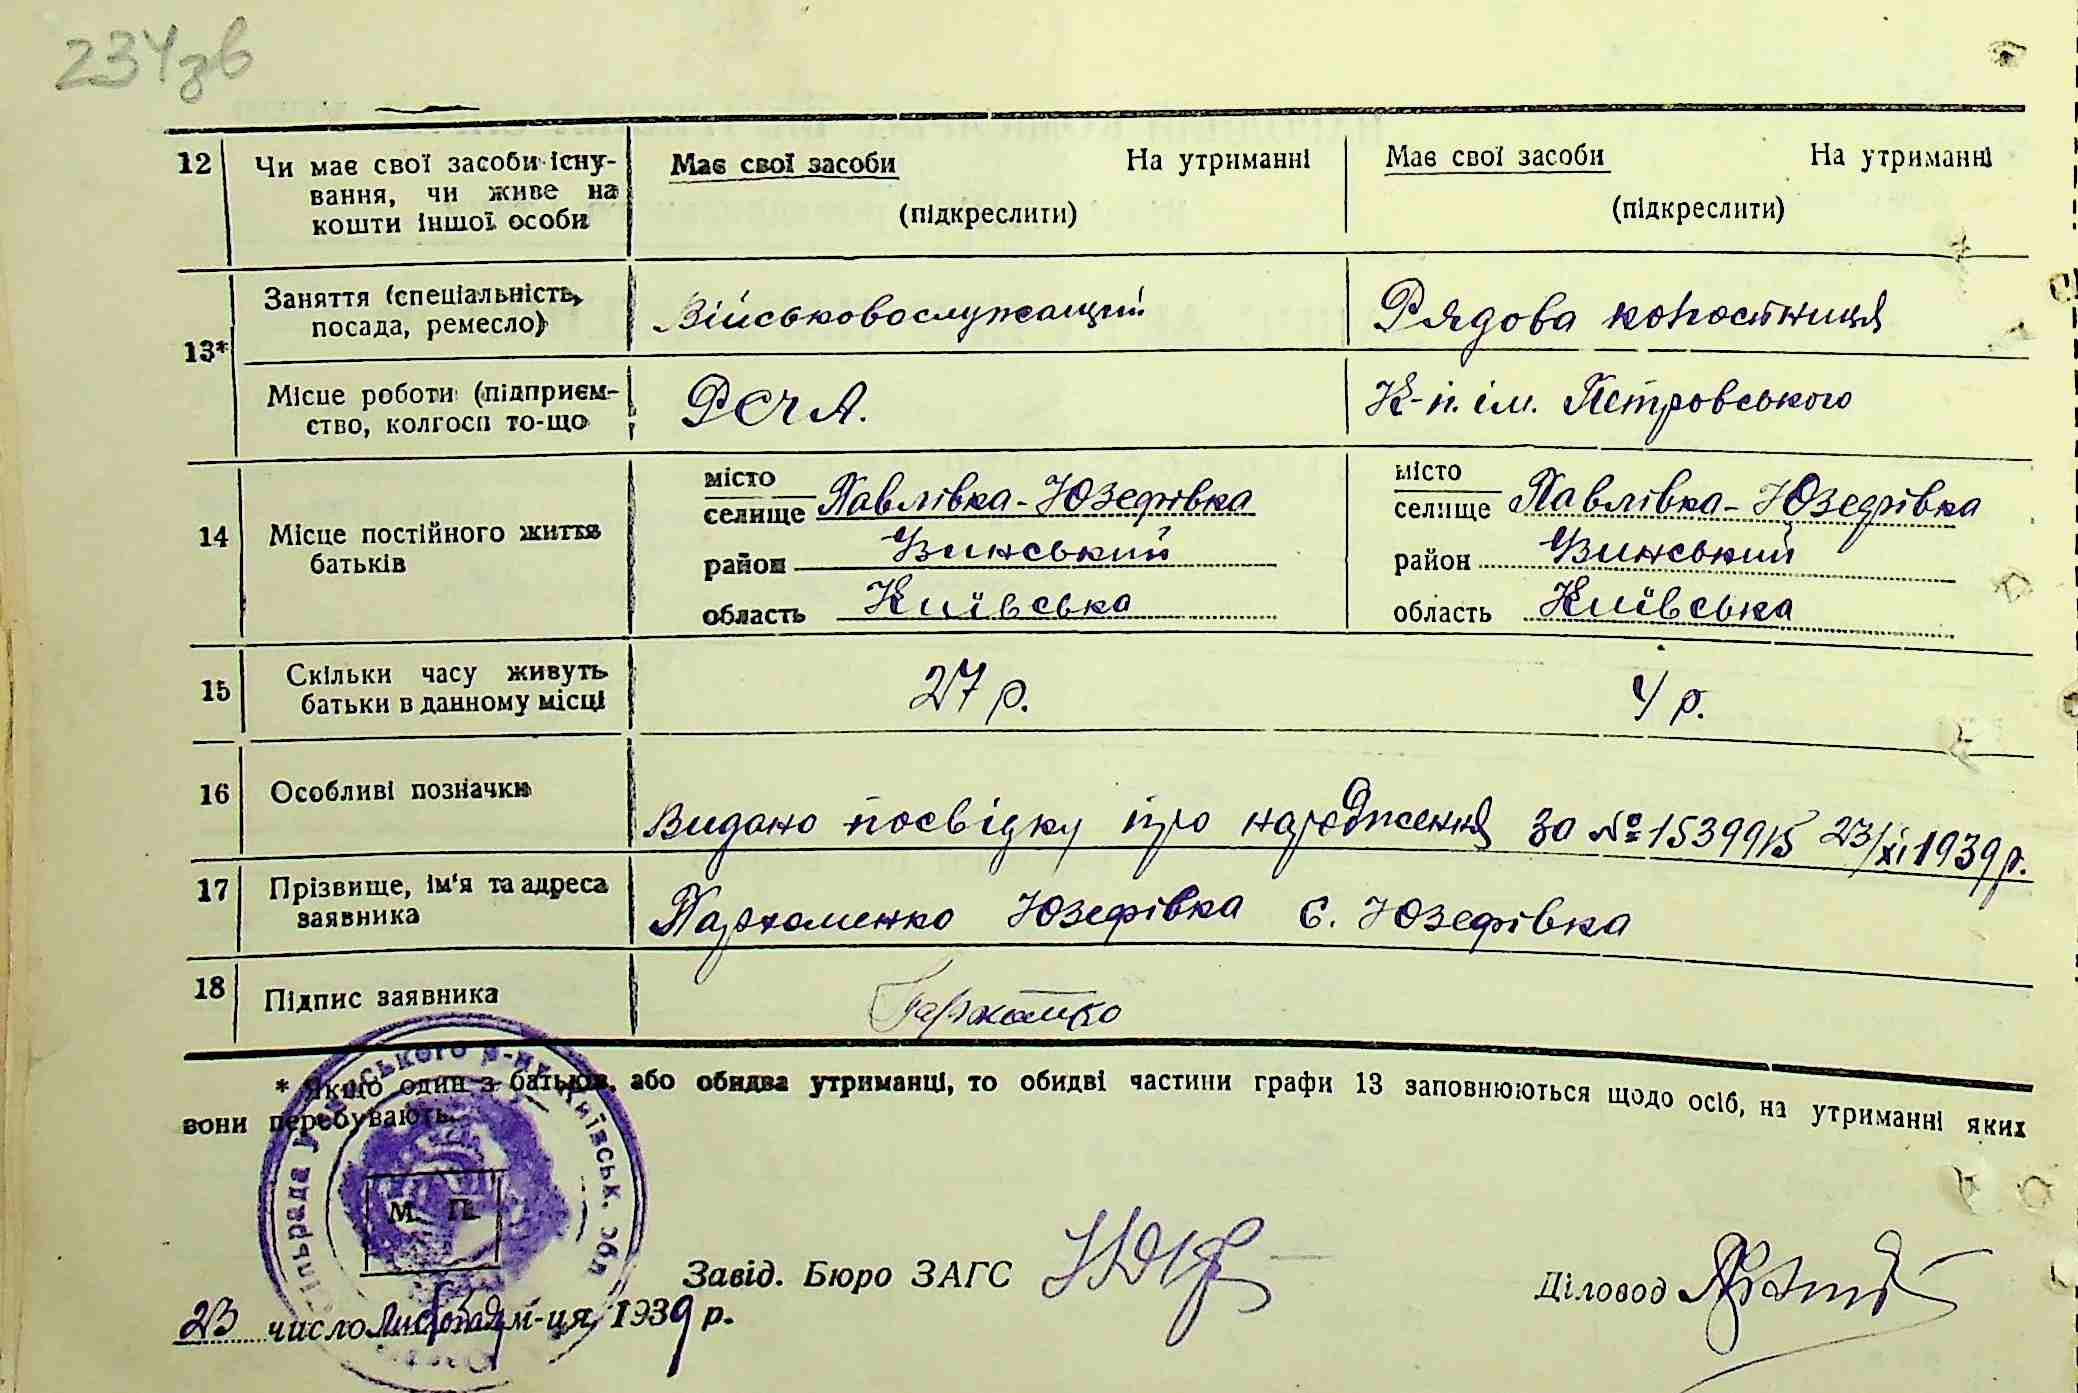 234зв
12 Чи має свої засоби існу-
вання, чи живе на
кошти іншої особи
Має свої засоби На утриманні
(підкреслити)
Має свої засоби На утриманні
(підкреслити)
13*
Заняття (спеціальність,
посада, ремесло)
Військовослужащий
Рядова колгостниця
Місце роботи (підприєм-
ство, колгосп то-що
РСЧА.
К-п. ім. Петровського
14 Місце постійного життя
батьків
місто
селище Павлівка-Юзефівка
район Узинський
область Київська
місто
селище Павлівка-Юзефівка
район Узинський
область Київська
15 Скільки часу живуть
батьки в данному місці
27 р.
4 р.
16 Особливі позначки
Видано посвідку про народження за № 1539915 23/XI 1939р.
17 Прізвище, ім'я та адреса
заявника
Пархоменко Юзефівка с. Юзефівка
18 Підпис заявника
* Якщо один з батьків, або обидва утриманці, то обидві частини графи 13 заповнюються щодо осіб, на утриманні яких
вони перебувають.
М. П.
Завід. Бюро ЗАГС
Діловод
23 число листопад м-ця 1939 р.